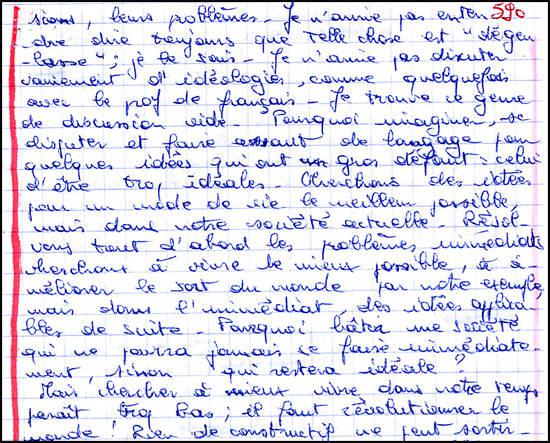 sions, leurs problèmes - Je n'aime pas enten 590
-dre dire toujours que telle chose est "dégeu
-lasse"; je le sais - Je n'aime pas discuter
vainement d'idéologies, comme quelquefois
avec le prof de français - Je trouve ce genre
de discussion vide - Pourquoi imaginer, se
disputer et faire assaut de langage pour
quelques idées qui ont un gros défaut : celui
d'être trop idéales - Cherchons des idées
pour un mode de vie le meilleur possible,
mais dans notre société actuelle - Résol-
vons tout d'abord les problèmes immédiats
cherchons à vivre le mieux possible, à a-
méliorer le sort du monde par notre exemple,
mais dans l'immédiat, des idées applica-
bles de suite - Pourquoi bâtir une société
qui ne pourra jamais se faire immédiate-
ment, sinon qui restera idéale ?
Mais chercher à mieux vivre dans notre temps
paraît trop bas ; il faut révolutionner le
monde ! Rien de constructif ne peut sortir -